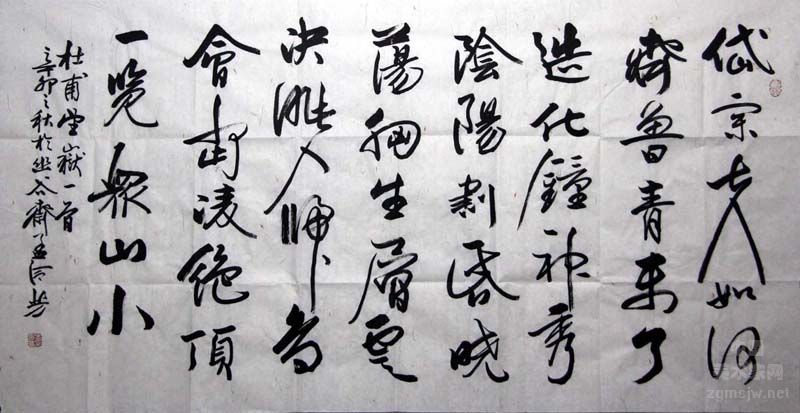 岱宗夫如何
齊魯青未了
造化鐘神秀
陰陽割昏曉
蕩胸生層雲
決眥入歸鳥
會當凌絕頂
一覽眾山小
杜甫望嶽一首
辛卯之秋於幽谷齋
美术家网
zgmsjw.net